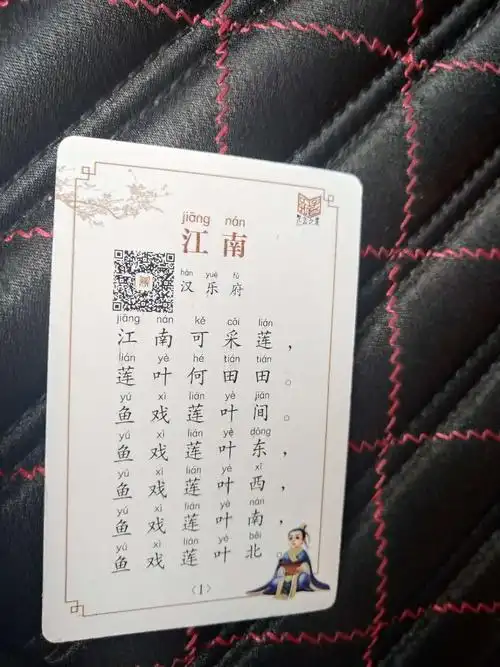 jiāng nán
江南
hàn yuè fǔ
汉乐府
jiāng nán kě cǎi lián
江南可采莲，
lián yè hé tián tián
莲叶何田田。
yú xì lián yè jiān
鱼戏莲叶间。
yú xì lián yè dōng
鱼戏莲叶东，
yú xì lián yè xī
鱼戏莲叶西，
yú xì lián yè nán
鱼戏莲叶南，
yú xì lián yè běi
鱼戏莲叶北。
〈1〉